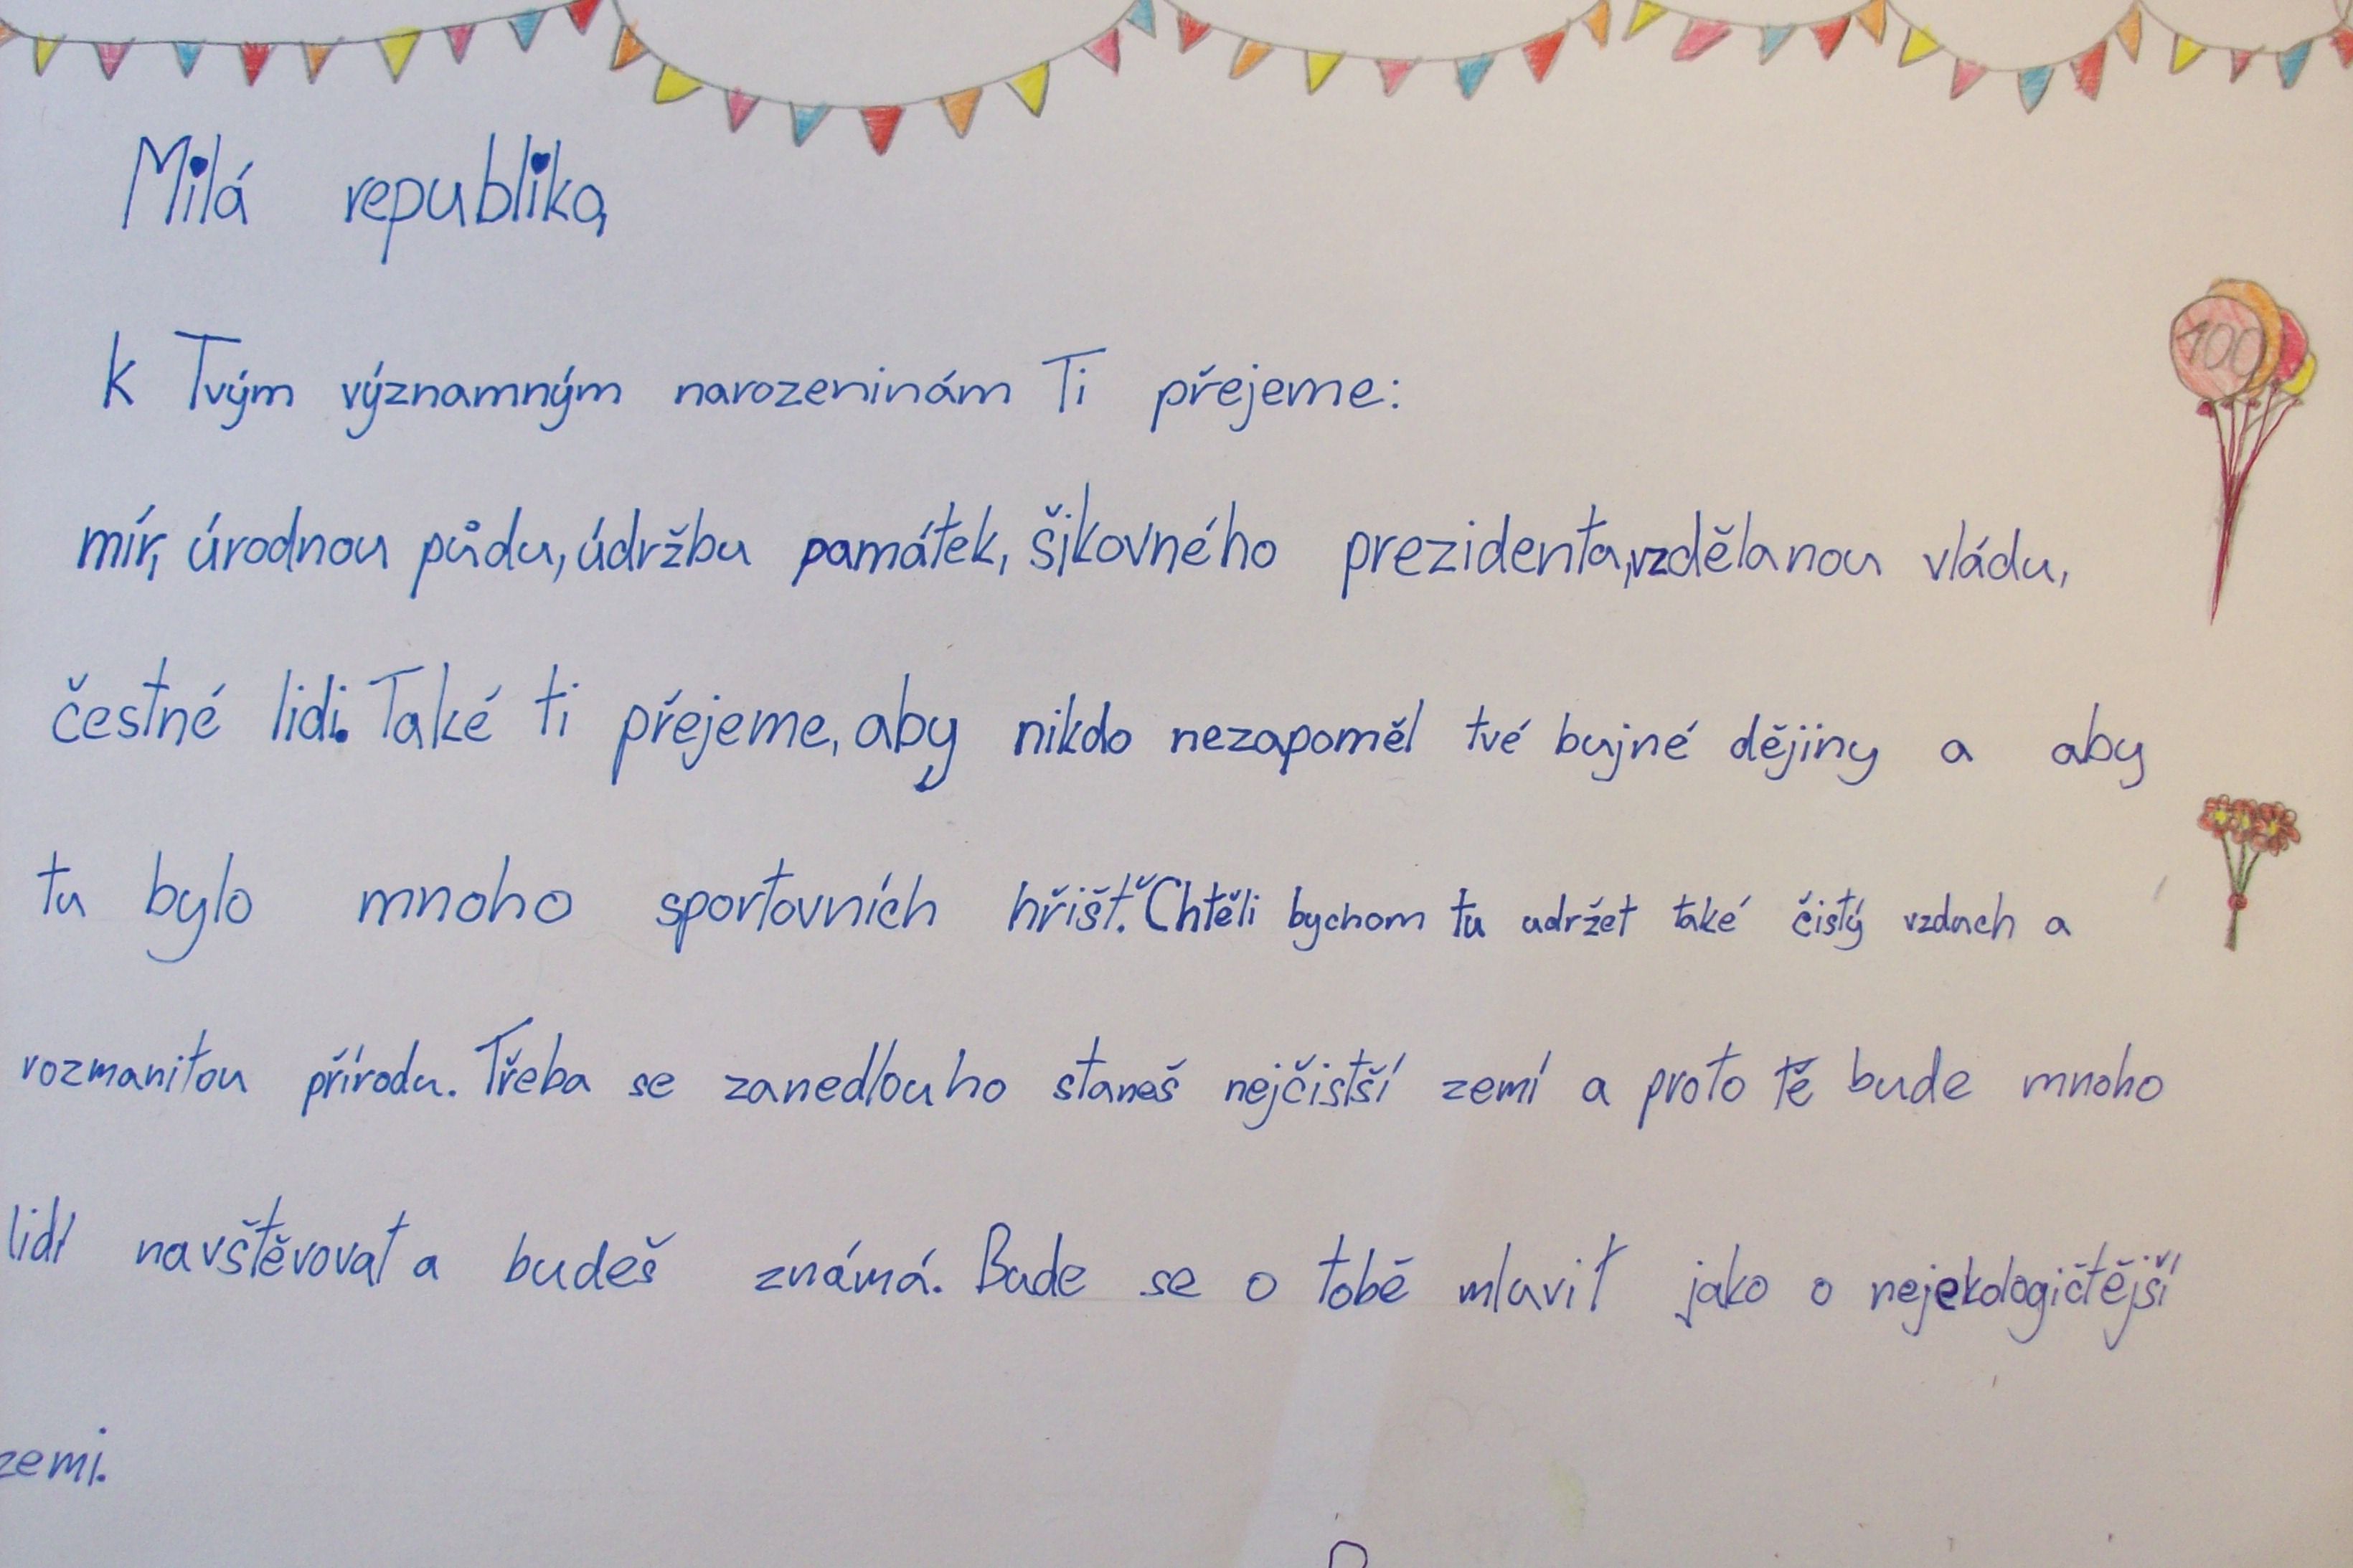 Milá republiko,
100
k Tvým významným narozeninám Ti přejeme:
mír, úrodnou půdu, údržbu památek, šikovného prezidenta, vzdělanou vládu,
čestné lidi. Také ti přejeme, aby nikdo nezapoměl tvé bujné dějiny a aby
tu bylo mnoho sportovních hřišť. Chtěli bychom tu udržet také čistý vzduch a
rozmanitou přírodu. Třeba se zanedlouho staneš nejčistší zemí a proto tě bude mnoho
lidí navštěvovat a budeš známá. Bude se o tobě mluvit jako o nejekologičtější
zemi.